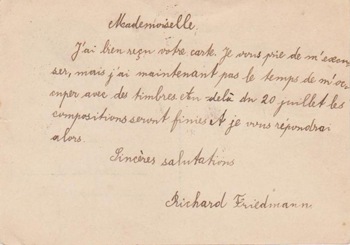 Mademoiselle.
J'ai bien reçu votre carte. Je vous prie de m'excu
ser, mais j'ai maintenant pas le temps de m'oc
cuper avec des timbres et delà du 20 juillet les
compositions seront finies et je vous répondrai
alors.
Sincères salutations
Richard Friedmann